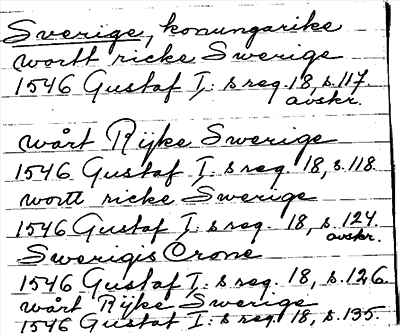 Sverige, konungarike
wortt ricke Swerige
1546 Gustaf I: s reg. 18, s. 117.
avskr.
wårt Rijke Swerige
1546 Gustaf I: s reg. 18, s. 118
wortt ricke Swerige
1546 Gustaf I: s reg. 18, s. 124.
avskr.
Swerigis Crone
1546 Gustaf I: s reg. 18, s. 126.
wårt Rijke Swerige
1546 Gustaf I: s reg. 18, s. 135.